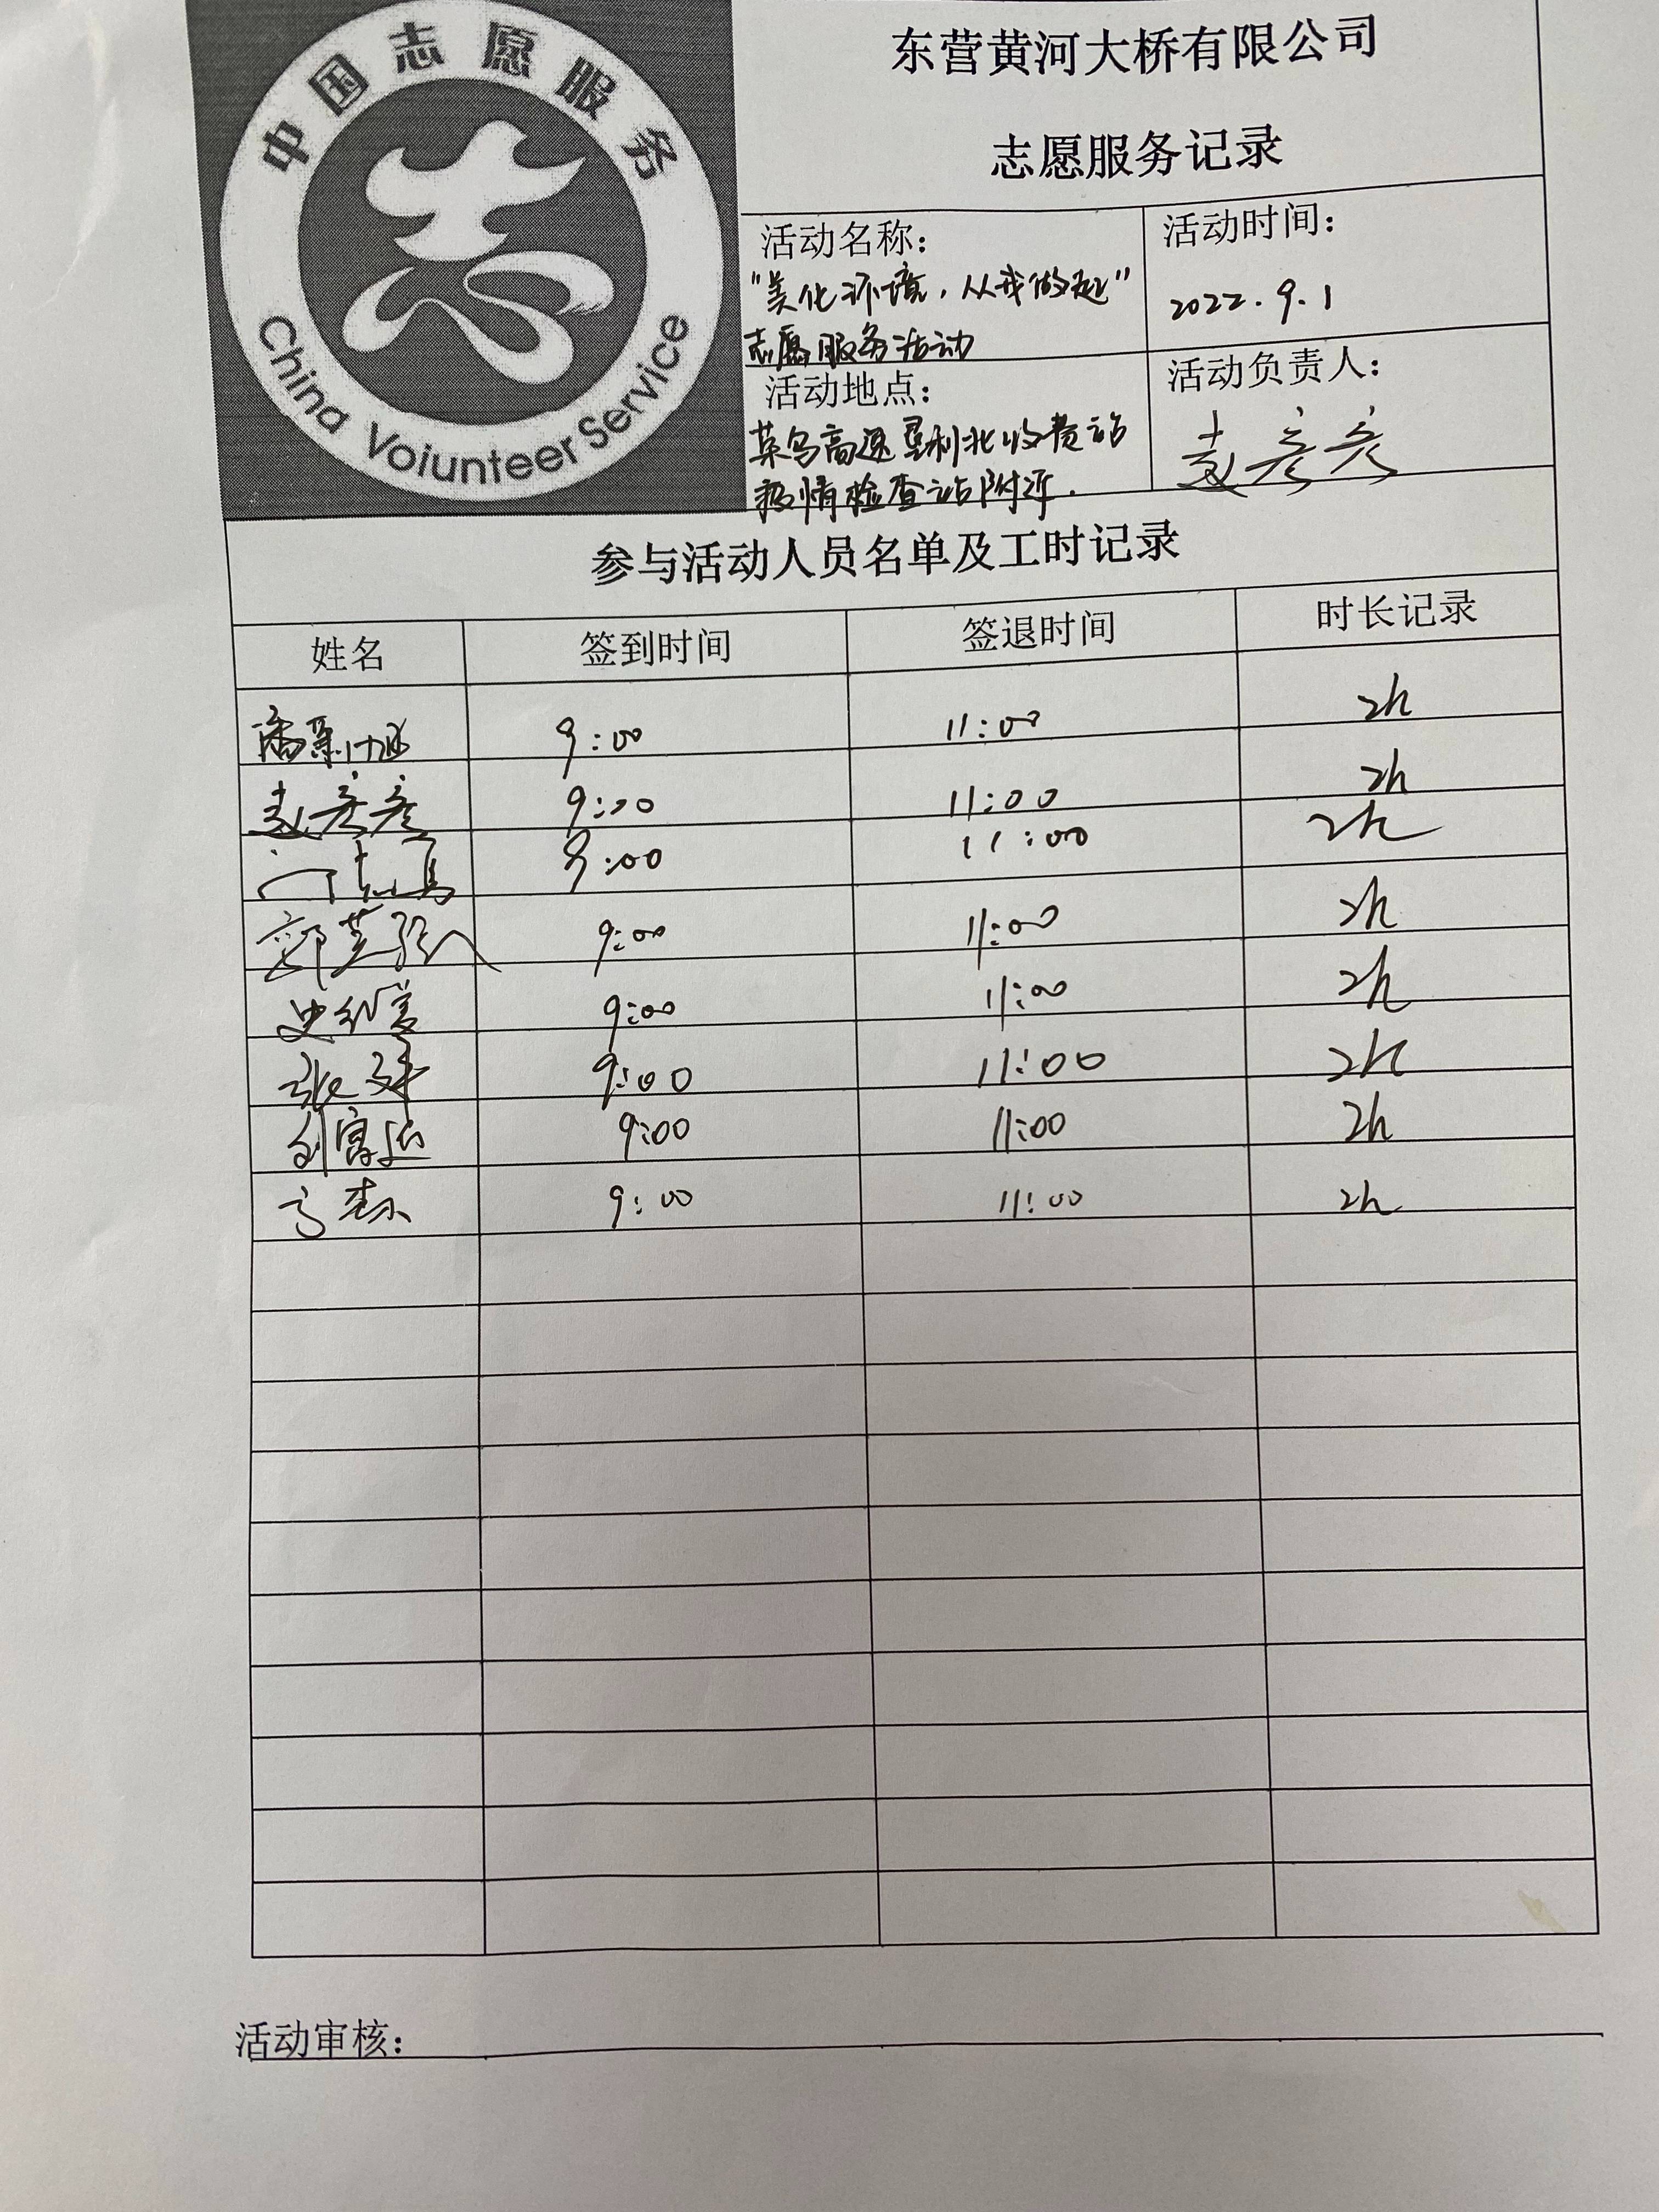 中国志愿服务
China Voiunteer Service
东营黄河大桥有限公司
志愿服务记录
活动名称：
"美化环境，从我做起"
志愿服务活动
活动时间：
2022.9.1
活动地点：
荣乌高速垦利北收费站
疫情检查站附近.
活动负责人：
赵彦彦
参与活动人员名单及工时记录
姓名 签到时间 签退时间 时长记录
9:00 11:00 2h
赵彦彦 9:00 11:00 2h
9:00 11:00 2h
郭芝 9:00 11:00 2h
史红霞 9:00 11:00 2h
张 9:00 11:00 2h
刘富 9:00 11:00 2h
高 9:00 11:00 2h
活动审核：